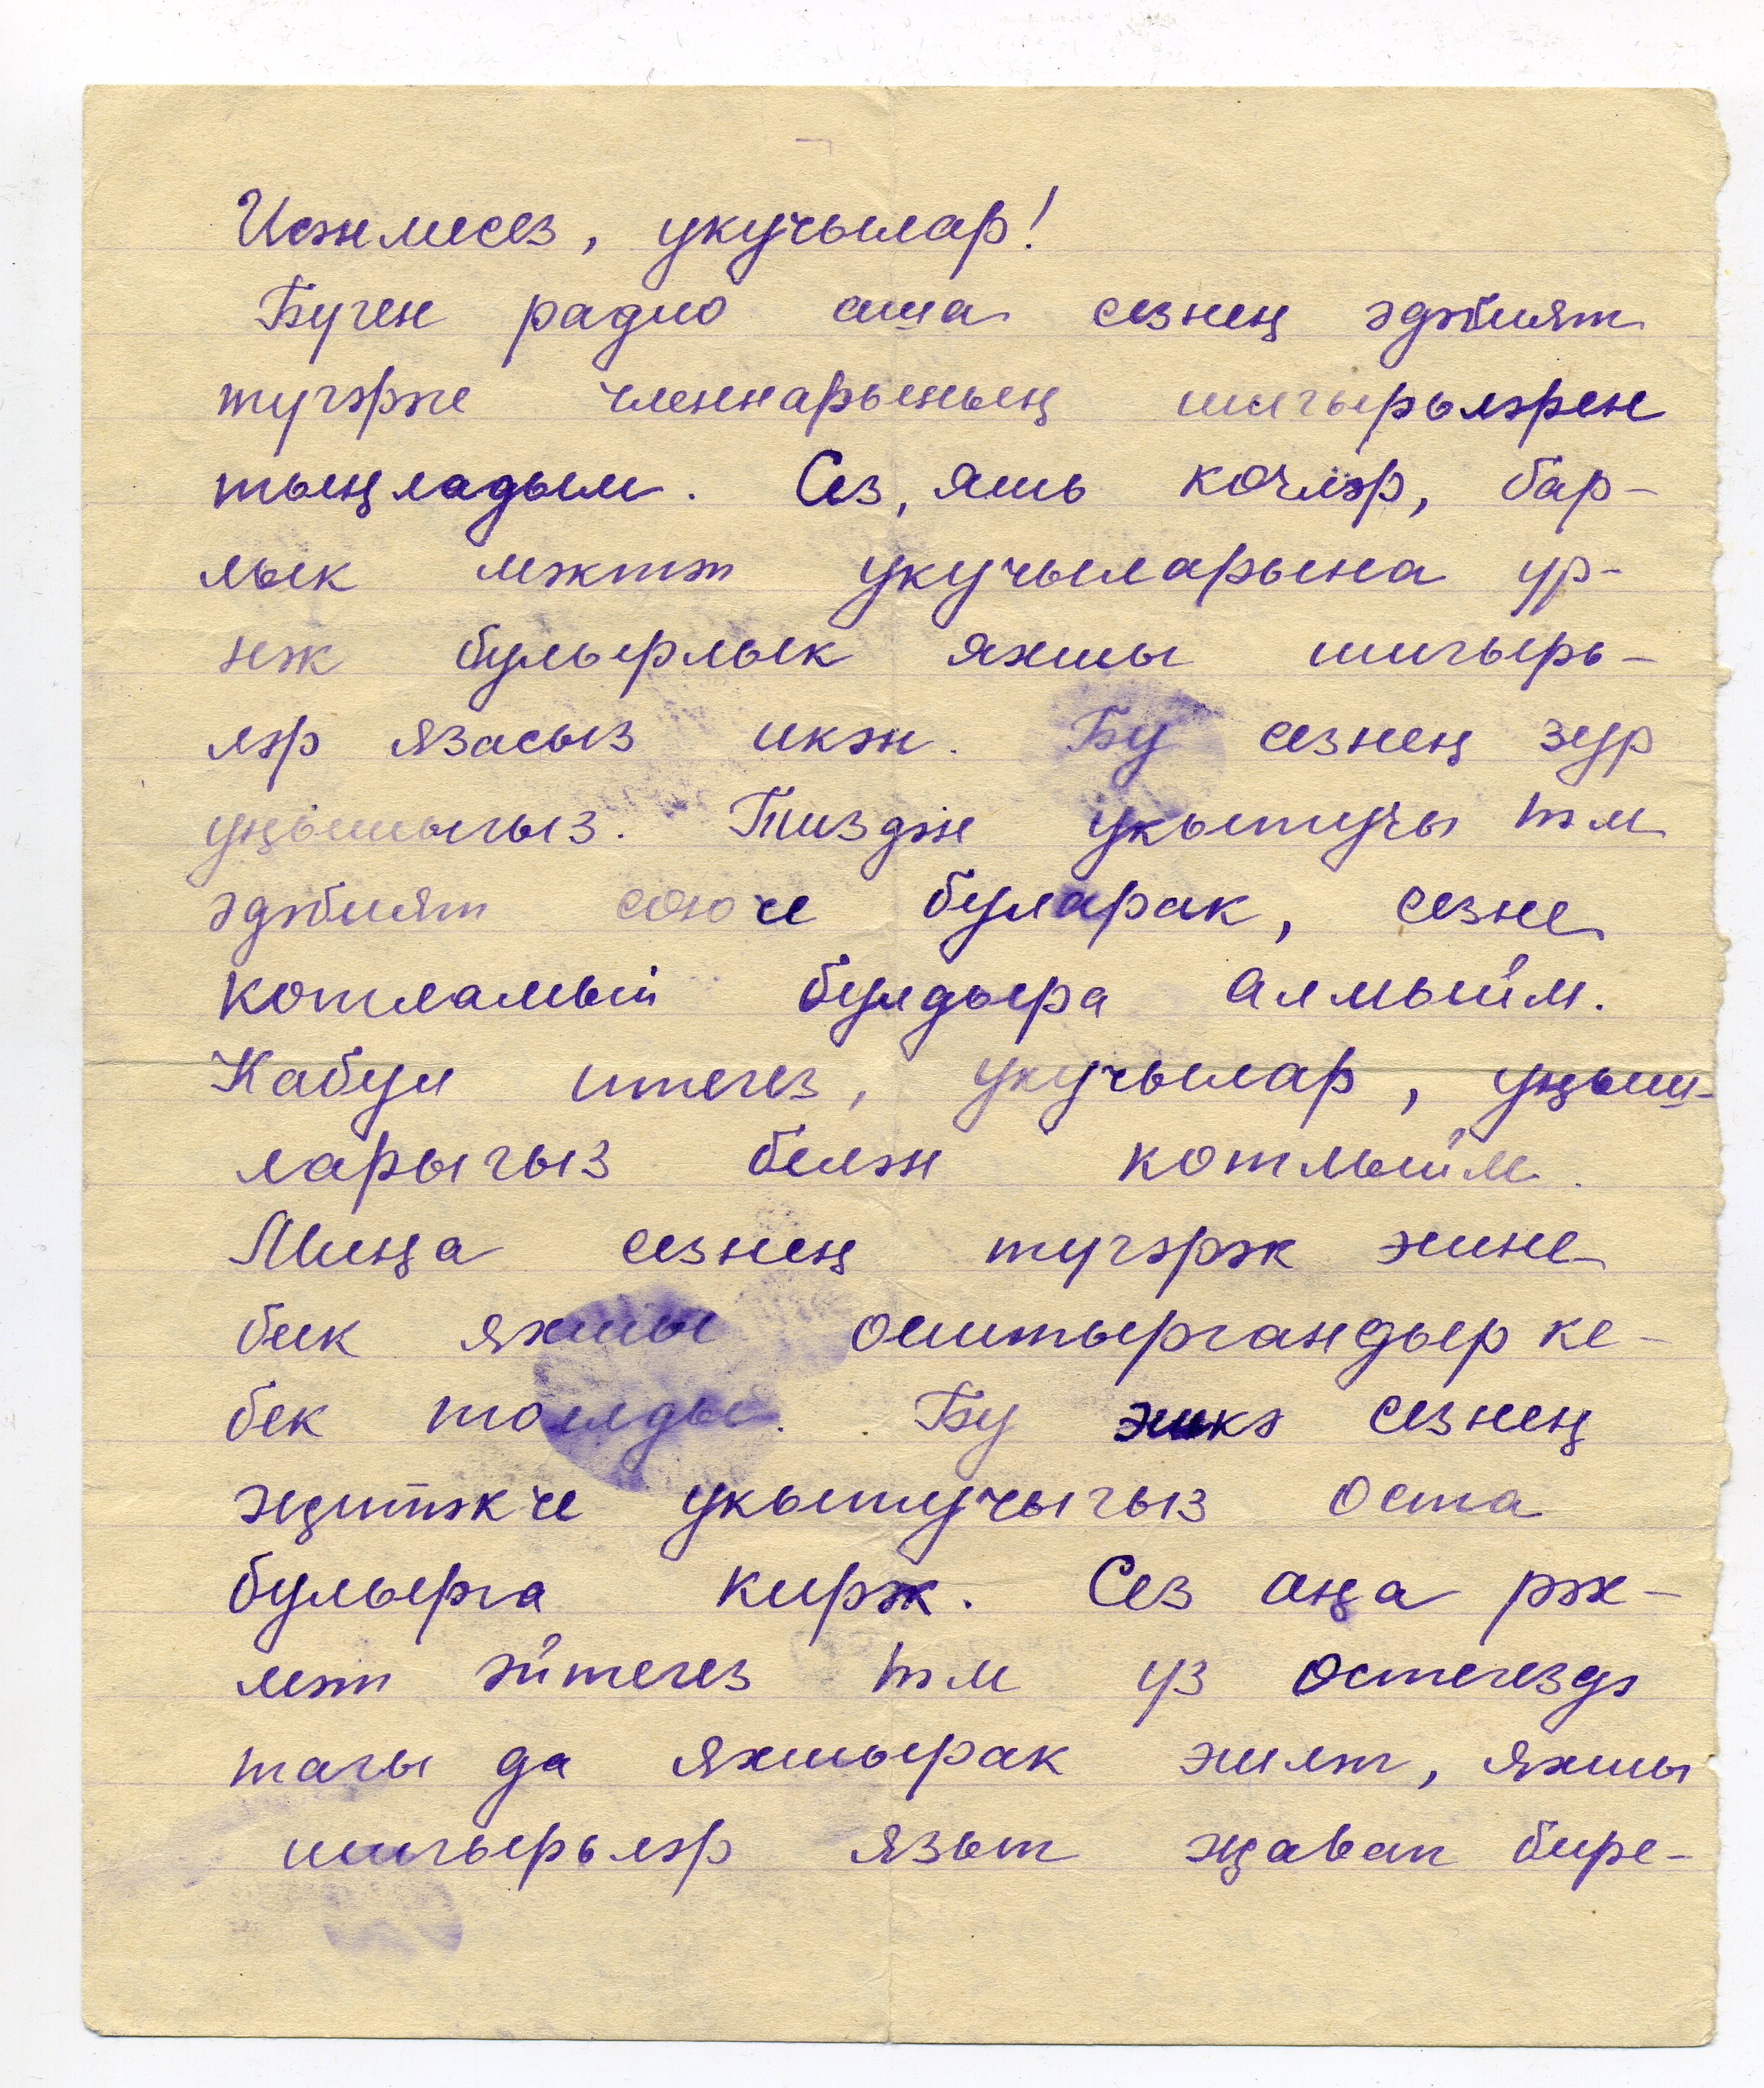 Исәнмесез, укучылар!
Бүген радио аша сезнең әдәбият
түгәрәге членнарының шигырьләрен
тыңладым. Сез, яшь көчләр, бар-
лык мәктәп укучыларына үр-
нәк булырлык яхшы шигырь-
ләр язасыз икән. Бу сезнең зур
уңышыгыз. Тиздән укытучы һәм
әдәбият сөюче буларак, сезне
котламый булдыра алмыйм.
Кабул итегез, укучылар, уңыш-
ларыгыз белән котлыйм.
Миңа сезнең түгәрәк эшне
бик яхшы оештыргандыр ке-
бек тоелды. Бу эшкә сезнең
җитәкче укытучыгыз оста
булырга кирәк. Сез аңа рәх-
мәт әйтегез һәм үз өстегездә
тагы да яхшырак эшләп, яхшы
шигырьләр язып җавап бире-